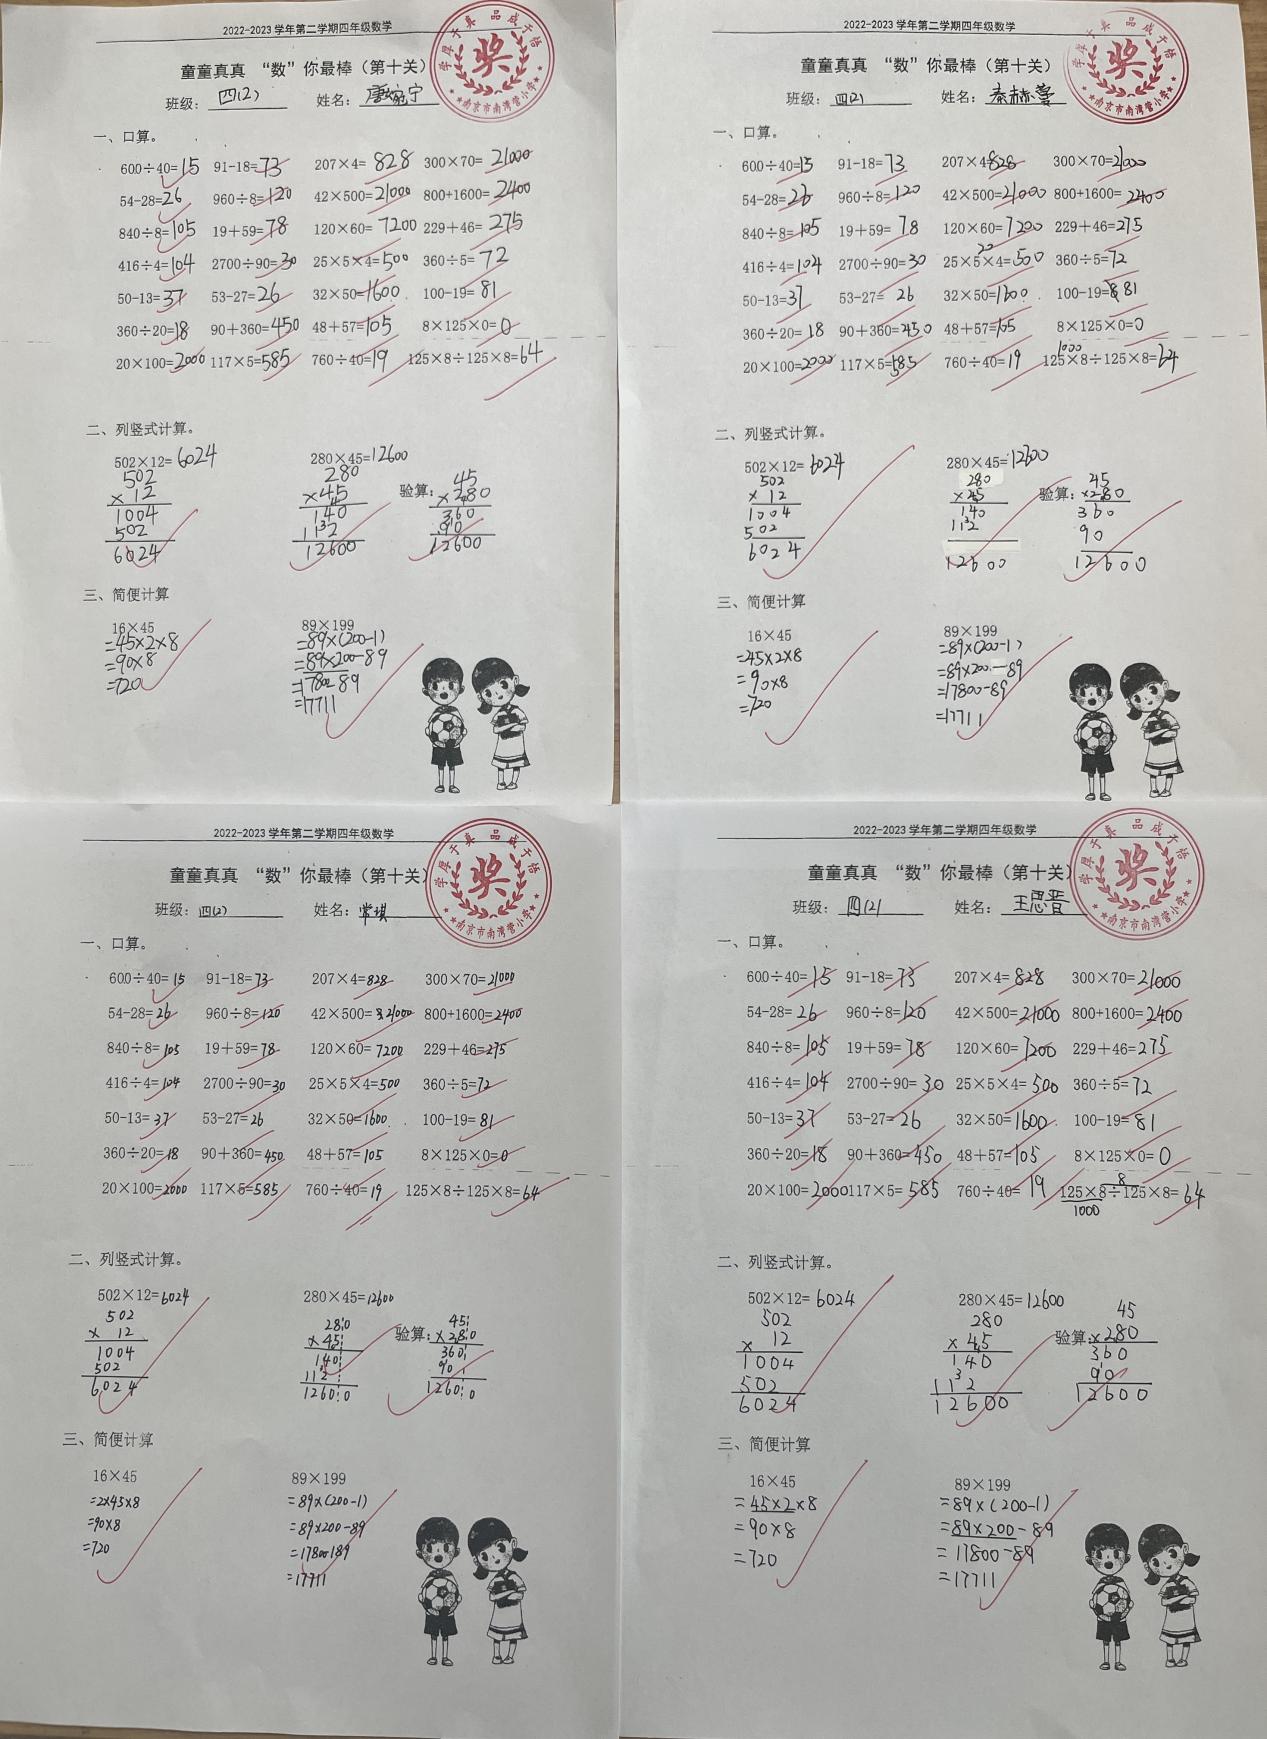 2022-2023 学年第二学期四年级数学
童童真真 “数”你最棒（第十关）
班级：四(2) 姓名：唐婉宁
学厚于真 品成于悟
奖
南京市南湾营小学
一、口算。
600÷40=15 91-18=73 207×4=828 300×70=21000
54-28=26 960÷8=120 42×500=21000 800+1600=2400
840÷8=105 19+59=78 120×60=7200 229+46=275
416÷4=104 2700÷90=30 25×5×4=500 360÷5=72
50-13=37 53-27=26 32×50=1600 100-19=81
360÷20=18 90+360=450 48+57=105 8×125×0=0
20×100=2000 117×5=585 760÷40=19 125×8÷125×8=64
二、列竖式计算。
502×12=6024 280×45=12600
502 280 验算：45
×12 ×45 ×280
1004 140 360
502 112 90
6024 12600 12600
三、简便计算
16×45 89×199
=45×2×8 =89×(200-1)
=90×8 =89×200-89
=720 =17800-89
=17711
2022-2023 学年第二学期四年级数学
童童真真 “数”你最棒（第十关）
班级：四(2) 姓名：秦赫蔓
学厚于真 品成于悟
奖
南京市南湾营小学
一、口算。
600÷40=15 91-18=73 207×4=828 300×70=21000
54-28=26 960÷8=120 42×500=21000 800+1600=2400
840÷8=105 19+59=78 120×60=7200 229+46=275
20
416÷4=104 2700÷90=30 25×5×4=500 360÷5=72
50-13=37 53-27=26 32×50=1600 100-19=81
360÷20=18 90+360=450 48+57=105 8×125×0=0
1000
20×100=2000 117×5=585 760÷40=19 125×8÷125×8=64
二、列竖式计算。
502×12=6024 280×45=12600
502 280 验算：45
×12 ×45 ×280
1004 140 360
502 112 90
6024 12600 12600
三、简便计算
16×45 89×199
=45×2×8 =89×(200-1)
=90×8 =89×200-89
=720 =17800-89
=17711
2022-2023 学年第二学期四年级数学
童童真真 “数”你最棒（第十关）
班级：四(2) 姓名：常琪
学厚于真 品成于悟
奖
南京市南湾营小学
一、口算。
600÷40=15 91-18=73 207×4=828 300×70=21000
54-28=26 960÷8=120 42×500=21000 800+1600=2400
840÷8=105 19+59=78 120×60=7200 229+46=275
416÷4=104 2700÷90=30 25×5×4=500 360÷5=72
50-13=37 53-27=26 32×50=1600 100-19=81
360÷20=18 90+360=450 48+57=105 8×125×0=0
20×100=2000 117×5=585 760÷40=19 125×8÷125×8=64
二、列竖式计算。
502×12=6024 280×45=12600
502 280 验算：45
×12 ×45 ×280
1004 140 360
502 112 90
6024 12600 12600
三、简便计算
16×45 89×199
=2×45×8 =89×(200-1)
=90×8 =89×200-89
=720 =17800-89
=17711
2022-2023 学年第二学期四年级数学
童童真真 “数”你最棒（第十关）
班级：四(2) 姓名：王思晋
学厚于真 品成于悟
奖
南京市南湾营小学
一、口算。
600÷40=15 91-18=73 207×4=828 300×70=21000
54-28=26 960÷8=120 42×500=21000 800+1600=2400
840÷8=105 19+59=78 120×60=7200 229+46=275
416÷4=104 2700÷90=30 25×5×4=500 360÷5=72
50-13=37 53-27=26 32×50=1600 100-19=81
360÷20=18 90+360=450 48+57=105 8×125×0=0
8
20×100=2000 117×5=585 760÷40=19 125×8÷125×8=64
1000
二、列竖式计算。
502×12=6024 280×45=12600
502 280 验算：45
×12 ×45 ×280
1004 140 360
502 112 90
6024 12600 12600
三、简便计算
16×45 89×199
=45×2×8 =89×(200-1)
=90×8 =89×200-89
=720 =17800-89
=17711